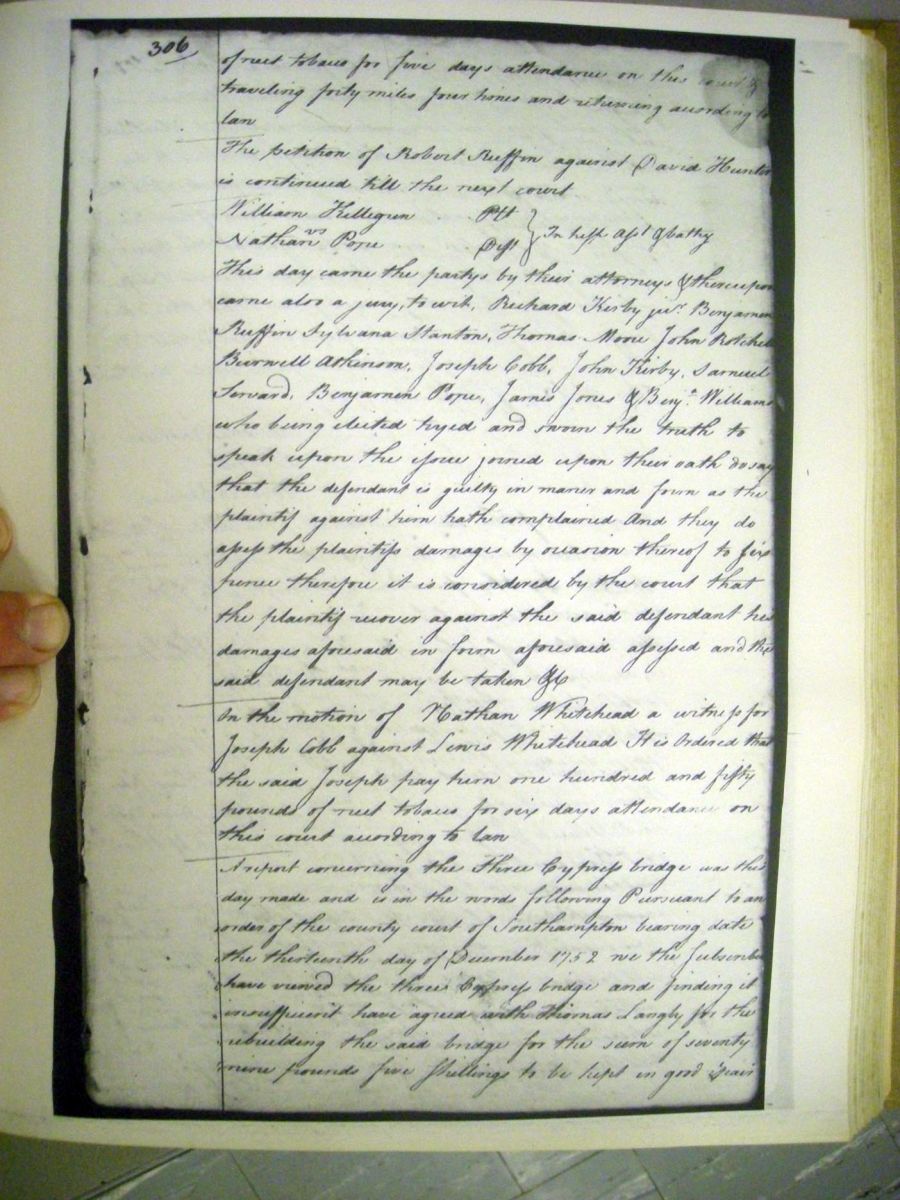 306
of nett tobacco for five days attendance on this court &
traveling forty miles four times and returning according to
law
The petition of Robert Ruffin against David Hunter
is continued till the next court
William Killegrew Plt
vs } In tresp Asst & batty
Nathan Pope Deft
This day came the partys by their attorneys & thereupon
came also a jury, to wit, Richard Kirby junr. Benjamen
Ruffin Sylvana Stanton, Thomas Moore John Rotchel
Burwell Atkinson, Joseph Cobb, John Kirby, Samuel
Benjamen Pope, James Jones & Benja. Williams
who being elected tryed and sworn the truth to
speak upon the issue joined upon their oath do say
that the defendant is guilty in maner and form as the
plaintif against him hath complained And they do
assess the plaintifs damages by occasion thereof to six
pence therefore it is considered by the court that
the plaintif recover against the said defendant his
damages aforesaid in form aforesaid assessed and the
said defendant may be taken &c
On the motion of Nathan Whitehead a witness for
Joseph Cobb against Lewis Whitehead It is Ordered that
the said Joseph pay him one hundred and fifty
pounds of nett tobacco for six days attendance on
this court according to law
A report concerning the Three Cypress bridge was this
day made and is in the words following Pursuant to an
order of the county court of Southampton bearing date
the thirteenth day of December 1752 we the subscribers
have viewed the three Cypress bridge and finding it
insufficient have agreed with Thomas Langly for the
rebuilding the said bridge for the sum of seventy
nine pounds five shillings to be kept in good repair